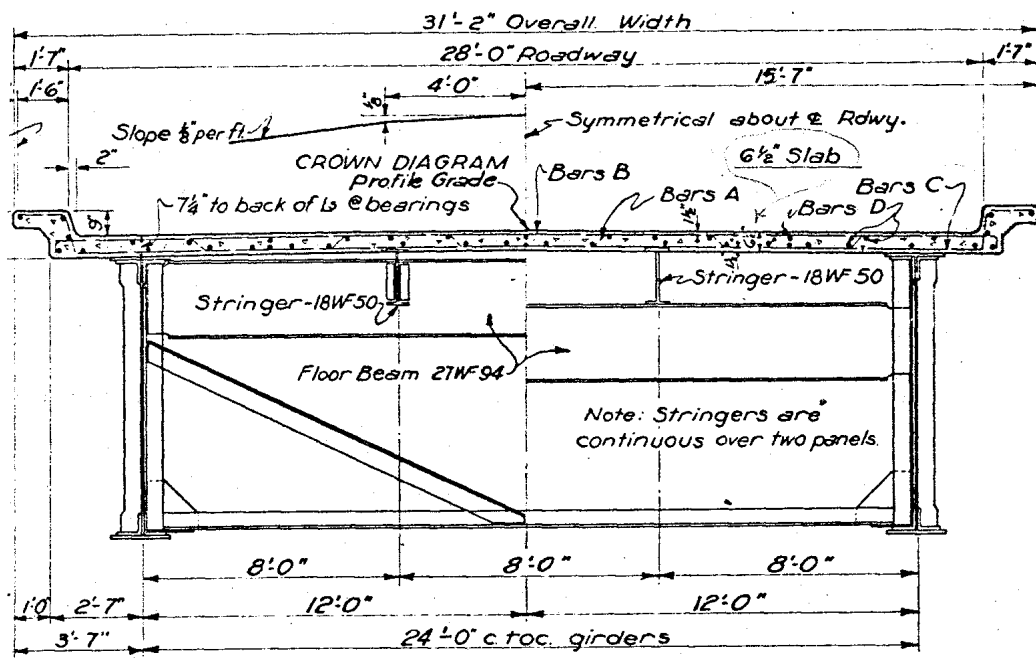 31'-2" Overall Width
1'-7"
28'-0" Roadway
1'-7"
1'-6"
4'-0"
15'-7"
Slope ⅛" per ft.
Symmetrical about ℄ Rdwy.
2"
CROWN DIAGRAM
6½" Slab
Profile Grade
Bars B
Bars A
1½"
Bars C
9"
7¼" to back of Ls @ bearings
Bars D
Stringer-18WF50
Stringer-18WF50
Floor Beam 27WF94
Note: Stringers are
continuous over two panels.
8'-0"
8'-0"
8'-0"
1'-0"
2'-7"
12'-0"
12'-0"
3'-7"
24'-0" c. to c. girders